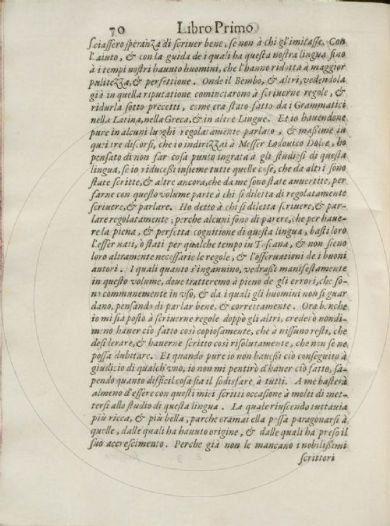 70 Libro Primo
sciassero speranza di scriuer bene, se non à chi gl'imitasse. Con
l'aiuto, & con la guida de i quali ha questa nostra lingua sino
à i tempi nostri hauuto huomini, che l'hanno ridotta à maggior
pulitezza, & perfettione. Onde il Bembo, & altri, vedendola
già in quella riputatione cominciarono à scriuerne regole, &
ridurla sotto precetti, come era stato fatto da i Grammatici
nella Latina, nella Greca, & in altre Lingue. Et io hauendone
pure in alcuni luoghi regolatamente parlato, & massime in
quei tre discorsi, che io indirizzai à Messer Lodouico Dolce, ho
pensato di non far cosa punto ingrata à gli studiosi di questa
lingua, se io riducessi insieme tutte quelle cose, che da altri sono
state scritte, & altre ancora, che da me sono state auuertite, per
farne con questo volume parte à chi si diletta di regolatamente
scriuere, & parlare. Ho detto à chi si diletta scriuere, & par-
lare regolatamente; perche alcuni sono di parere, che per haue-
re la piena, & perfetta cognitione di questa lingua, basti loro
l'esser nati, ò stati per qualche tempo in Toscana, & non sieno
loro altramente necessarie le regole, & l'osseruationi de i buoni
autori. I quali quanto s'ingannino, vedrassi manifestamente
in questo volume, doue tratteremo à pieno de gli errori, che so-
no communemente in vso, & da i quali gli huomini non si guar
dano, pensando di parlar bene, & correttamente. Ora benche
io mi sia posto à scriuerne regole doppò gli altri, crederò nondi-
meno hauer ciò fatto così copiosamente, che à nissuno resti, che
desiderare, & hauerne scritto così risolutamente, che non se ne
possa dubitare. Et quando pure io non hauessi ciò conseguito à
giudizio di qualch'vno, io non mi pentirò d'hauer ciò fatto, sa-
pendo quanto difficil cosa sia il sodisfare à tutti. A me basterà
almeno d'essere con questi miei scritti occasione à molti di met-
tersi allo studio di questa lingua. La quale riuscendo tuttauia
più ricca, & più bella, parche oramai ella possa paragonarsi à
quelle, dalle quali ha hauuto origine, & dalle quali ha preso il
suo accrescimento. Perche già non le mancano i nobilissimi
scrittori